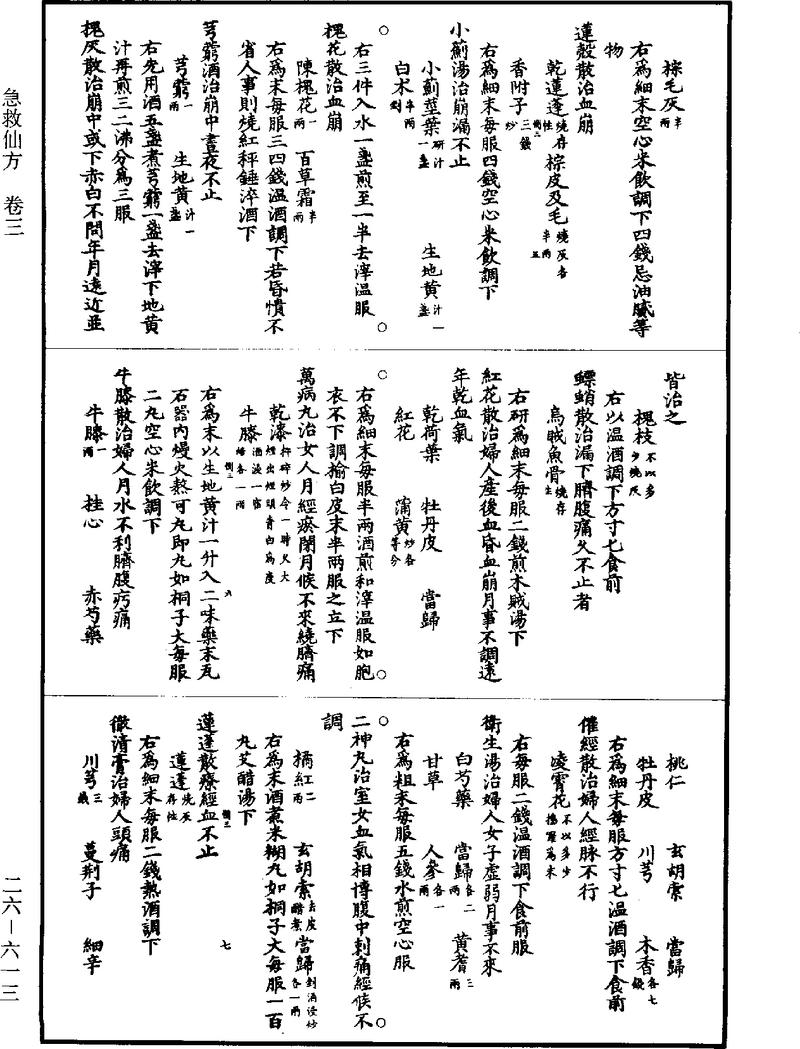 急救仙方 卷三
二六-六一三
棕毛灰半兩
右爲細末空心米飲調下四錢忌油膩等
物
蓮殼散治血崩
乾蓮蓬燒存性 棕皮及毛燒灰各半兩
香附子三錢炒
右爲細末每服四錢空心米飲調下
小薊湯治崩漏不止
小薊莖葉研汁一盞 生地黄汁一盞
白术半兩剉
右三件入水一盞煎至一半去滓温服
槐花散治血崩
陳槐花一兩 百草霜半兩
右爲末每服三四錢温酒調下若昏憒不
省人事則燒紅秤錘淬酒下
芎藭酒治崩中晝夜不止
芎藭一兩 生地黄汁一盞
右先用酒五盞煮芎藭一盞去滓下地黄
汁再煎三二沸分爲三服
槐灰散治崩中或下赤白不問年月遠近並
皆治之
槐枝不以多少燒灰
右以温酒調下方寸匕食前
鰾蛸散治漏下臍腹痛久不止者
烏賊魚骨燒存性
右研爲細末每服二錢煎木賊湯下
紅花散治婦人產後血昏血崩月事不調遠
年乾血氣
乾荷葉 牡丹皮 當歸
紅花 蒲黄炒各等分
右爲細末每服半兩酒煎和滓温服如胞
衣不下調榆白皮末半兩服之立下
萬病丸治女人月經瘀閉月候不來繞臍痛
乾漆杵碎炒令大煙出煙頭青白爲度
牛膝酒浸一宿焙各一兩
右爲末以生地黄汁一升入二味藥末瓦
石器内熳火熬可丸即丸如桐子大每服
二丸空心米飲調下
牛膝散治婦人月水不利臍腹㽲痛
牛膝一兩 桂心 赤芍藥
桃仁 玄胡索 當歸
牡丹皮 川芎 木香各七錢
右爲細末每服方寸匕温酒調下食前
催經散治婦人經脉不行
凌霄花不以多少擣羅爲末
右每服二錢温酒調下食前服
衛生湯治婦人女子虛弱月事不來
白芍藥 當歸各二兩 黄耆三兩
甘草 人參各一兩
右爲粗末每服五錢水煎空心服
二神丸治室女血氣相博腹中刺痛經候不
調
橘紅二兩 玄胡索去皮醋煮 當歸剉酒浸炒各一兩
右爲末酒煮米糊丸如桐子大每服一百
丸艾醋湯下
蓮蓬散療經血不止
蓮蓬燒灰存性
右爲細末每服二錢熱酒調下
徹清膏治婦人頭痛
川芎三錢 蔓荆子 細辛